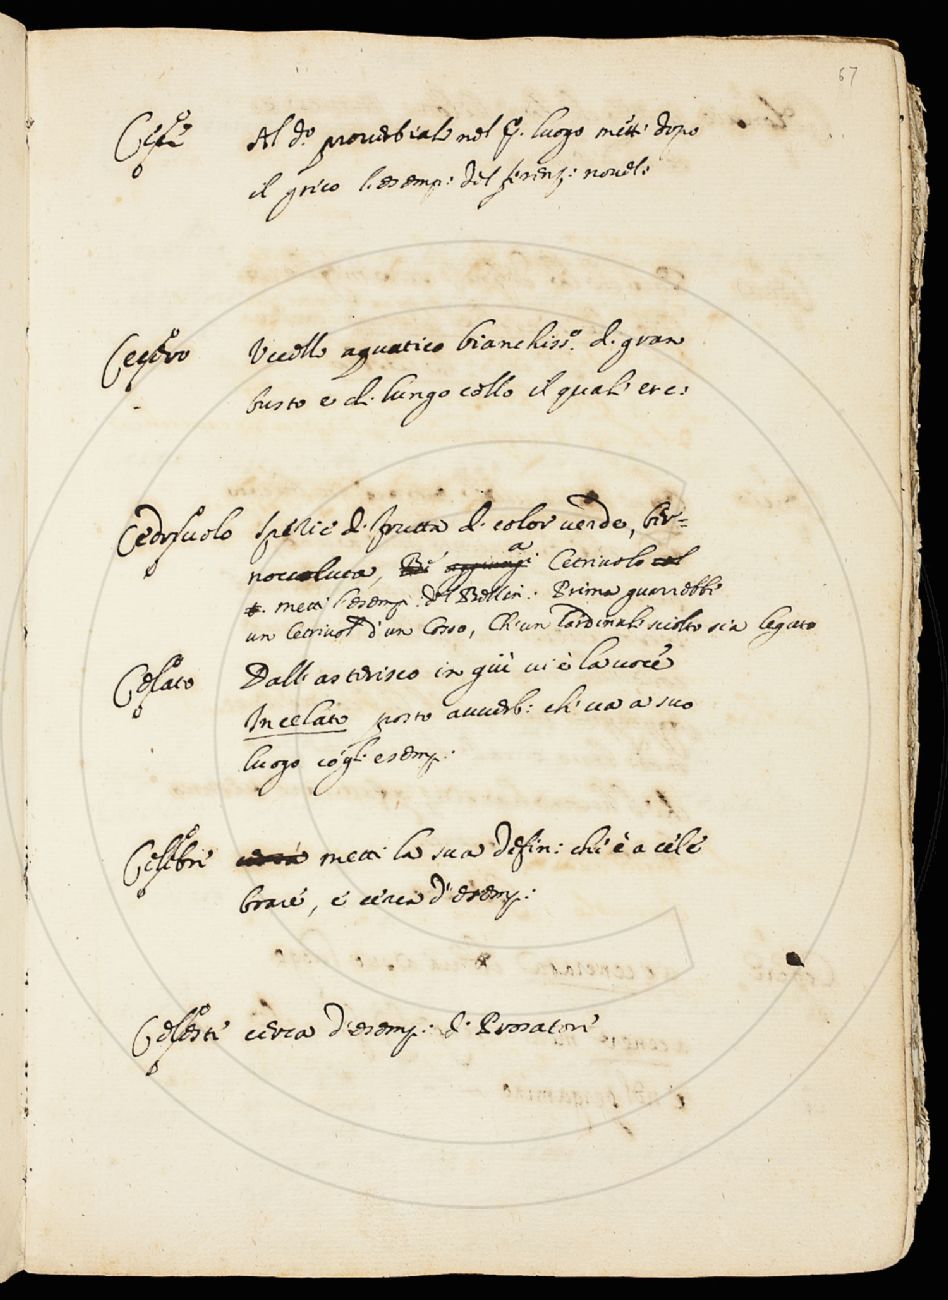 67
Cece Al d.o proverbiale nel p.o luogo metti dopo
il greco l'esemp: del Firenz: novel:
Cecero Uccello aquatico bianchiss.o di gran
busto e di lungo collo il quale etc:
Cedriuolo Spezie di frutta di color verde, ber=
noccoluta, a Cetriuolo
metti l'esemp: del Bellin: Prima guarrebbe
un Cetriuol d'un Corso, Ch'un Cardinale sciolto sia legato
Celato Dall'asterisco in giù vi è la voce
Incelato posto avverb: che va a suo
luogo cogli esemp:
Celebre metti la sua defin: che è a cele
brare, e cerca d'esemp:
Celeste cerca d'esemp: di Prosatore